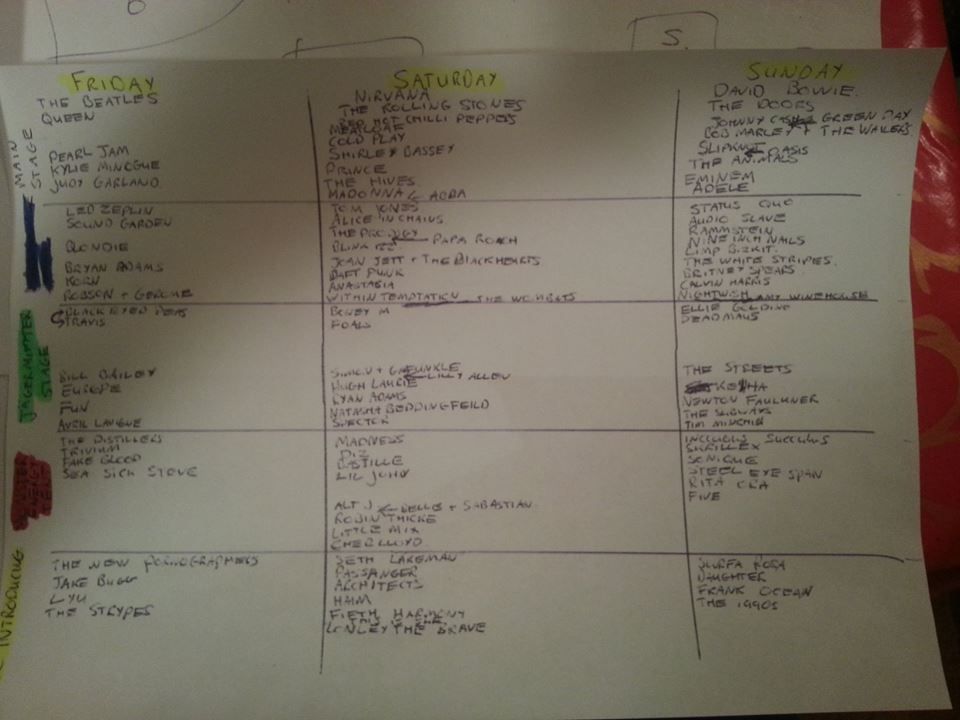 S.
FRIDAY
SATURDAY
SUNDAY
MAIN STAGE
THE BEATLES
QUEEN
PEARL JAM
KYLIE MINOGUE
JUDY GARLAND
NIRVANA
THE ROLLING STONES
RED HOT CHILLI PEPPERS
MEATLOAF
COLD PLAY
SHIRLEY BASSEY
PRINCE
THE HIVES
MADONNA ABBA
DAVID BOWIE.
THE DOORS
JOHNNY CASH GREEN DAY
BOB MARLEY + THE WAILERS
SLIPKNOT OASIS
THE ANIMALS
EMINEM
ADELE
LED ZEPLIN
SOUND GARDEN
BLONDIE
BRYAN ADAMS
KORN
ROBSON + GEROME
TOM JONES
ALICE IN CHAINS
THE PRODIGY PAPA ROACH
BLINK 182
JOAN JETT + THE BLACKHEARTS
DAFT PUNK
ANASTASIA
WITHIN TEMPTATION THE WOMBATS
STATUS QUO
AUDIO SLAVE
RAMMSTEIN
NINE INCH NAILS
LIMP BIZKIT.
THE WHITE STRIPES.
BRITNEY SPEARS.
CALVIN HARRIS
NIGHTWISH AMY WINEHOUSE
STAGE
BLACK EYED PEAS
TRAVIS
BILL BAILEY
EUROPE
FUN
AVRIL LAVIGNE
BONEY M
FOALS
SIMON + GARFUNKLE
HUGH LAURIE LILLY ALLEN
RYAN ADAMS
NATASHA BEDDINGFEILD
SPECTOR
ELLIE GOLDING
DEADMAUS
THE STREETS
KE$HA
NEWTON FAULKNER
THE SUBWAYS
TIM MINCHIN
THE DISTILLERS
TRIVIUM
FAKE BLOOD
SEA SICK STEVE
MADNESS
BASTILLE
LIL JOHN
ALT J BELLE + SABASTIAN
ROBIN THICKE
LITTLE MIX
CHER LLOYD
INCCUBUS SUCCUBUS
SKRILLEX
SONIQUE
STEEL EYE SPAN
RITA ORA
FIVE
INTRODUCING
THE NEW PORNOGRAPHERS
JAKE BUGG
THE STRYPES
SETH LAKEMAN
PASSANGER
ARCHITECTS
HAIM
FIFTH HARMONY
LONLEY THE BRAVE
DAUGHTER
FRANK OCEAN
THE 1990S